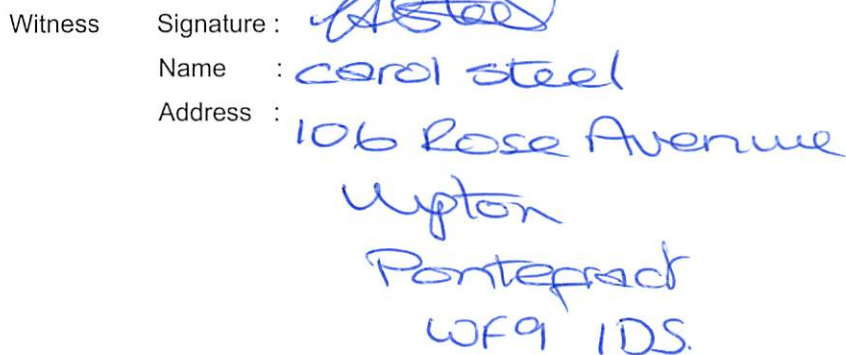 Witness Signature : CASteel
Name : Carol Steel
Address :
106 Rose Avenue
Upton
Pontefract
WF9 1DS.